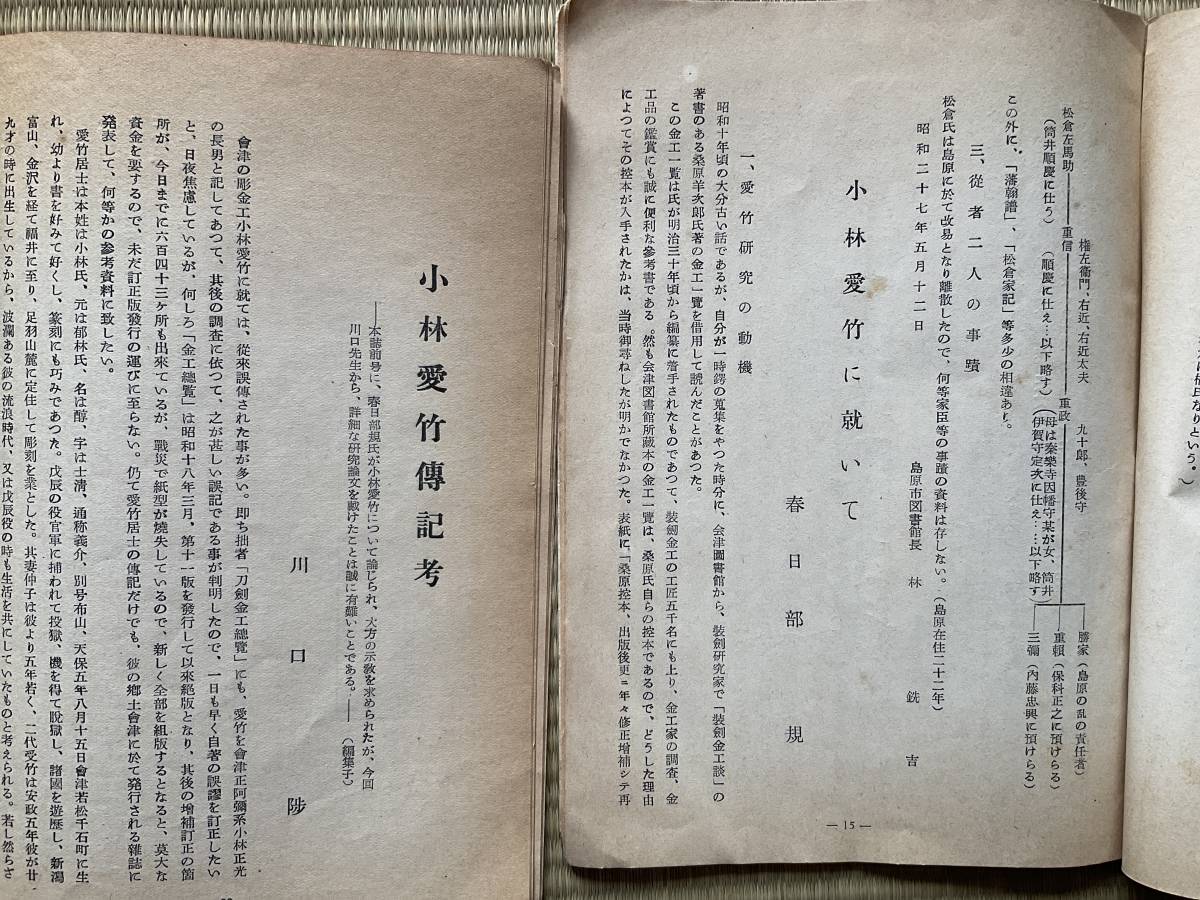 は信氏なりという。）
松倉左馬助
（筒井順慶に仕う）
権左衞門、右近、右近太夫
重信
（順慶に仕え…以下略す）
九十郎、豊後守
重政
（母は秦樂寺因幡守某が女、筒井
伊賀守定次に仕え……以下略す）
勝家（島原の乱の責任者）
重頼（保科正之に預けらる）
三彌（内藤忠興に預けらる）
この外に、「藩翰譜」、「松倉家記」等多少の相違あり。
三、從者二人の事蹟
松倉氏は島原に於て改易となり離散したので、何等家臣等の事蹟の資料は存しない。（島原在住二十二年）
昭和二十七年五月十二日
島原市図書館長　林　銑吉
小林愛竹に就いて
春日部規
一、愛竹硏究の動機
昭和十年頃の大分古い話であるが、自分が一時鍔の蒐集をやつた時分に、会津圖書館から、裝劍研究家で「裝劍金工談」の
著書のある桑原羊次郞氏著の金工一覽を借用して読んだことがあつた。
この金工一覽は氏が明治三十年頃から編纂に着手されたものであつて、裝劍金工の工匠五千名にも上り、金工家の調査、金
工品の鑑賞にも誠に便利な參考書である。然も会津図書館所蔵本の金工一覽は、桑原氏自らの控本であるので、どうした理由
によつてその控本が入手されたかは、当時御尋ねしたが明かでなかつた。表紙に「桑原控本、出版後更ニ年々修正增補シテ再
― 15 ―
小林愛竹傳記考
――本誌前号に、春日部規氏が小林愛竹について論じられ、大方の示敎を求められたが、今回
川口先生から、詳細な研究論文を戴けたことは誠に有難いことである。――（編集子）
川口陟
會津の彫金工小林愛竹に就ては、從來誤傳された事が多い。即ち拙者「刀劍金工總覽」にも、愛竹を會津正阿彌系小林正光
の長男と記してあつて、其後の調査に依つて、之が甚しい誤記である事が判明したので、一日も早く自著の誤謬を訂正したい
と、日夜焦慮しているが、何しろ「金工總覽」は昭和十八年三月、第十一版を發行して以來絕版となり、其後の增補訂正の箇
所が、今日までに六百四十三ヶ所も出來ているが、戰災で紙型が燒失しているので、新しく全部を組版するとなると、莫大な
資金を要するので、未だ訂正版發行の運びに至らない。仍て愛竹居士の傳記だけでも、彼の鄉土會津に於て発行される雜誌に
発表して、何等かの參考資料に致したい。
愛竹居士は本姓は小林氏、元は郁林氏、名は醇、字は士淸、通称義介、別号布山、天保五年八月十五日會津若松千石町に生
れ、幼より書を好みて好くし、篆刻にも巧みであつた。戊辰の役官軍に捕われて投獄、機を得て脫獄し、諸國を遊歷し、新潟
富山、金沢を経て福井に至り、足羽山麓に定住して彫刻を業とした。其妻仲子は彼より五年若く、二代受竹は安政五年彼が廿
九才の時に出生しているから、波瀾ある彼の流浪時代、又は戊辰役の時も生活を共にしていたものと考えられる。若し然らさ